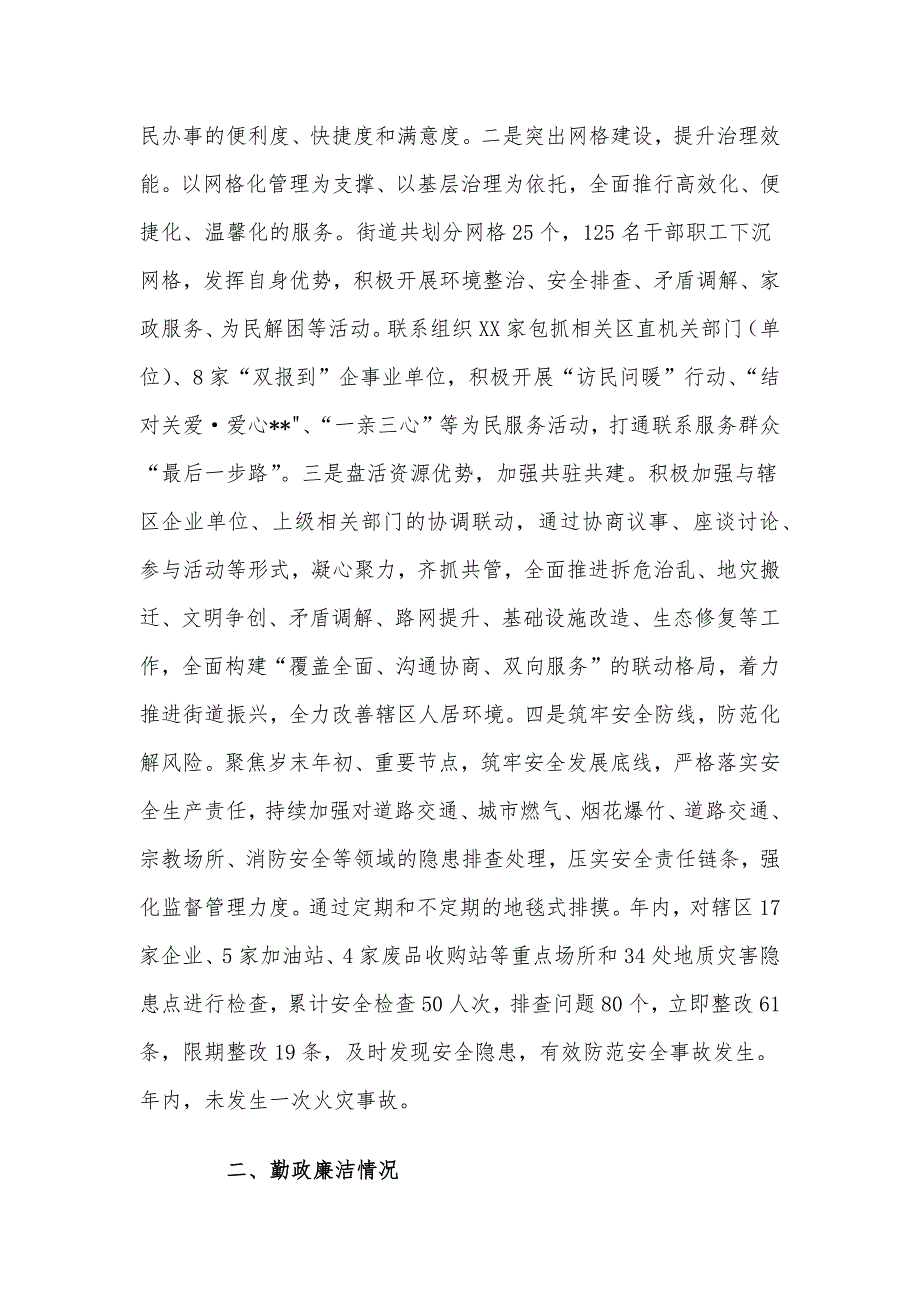 民办事的便利度、快捷度和满意度。二是突出网格建设，提升治理效
能。以网格化管理为支撑、以基层治理为依托，全面推行高效化、便
捷化、温馨化的服务。街道共划分网格25个，125名干部职工下沉
网格，发挥自身优势，积极开展环境整治、安全排查、矛盾调解、家
政服务、为民解困等活动。联系组织XX家包抓相关区直机关部门（单
位）、8家“双报到”企事业单位，积极开展“访民问暖”行动、“结
对关爱·爱心**"、“一亲三心”等为民服务活动，打通联系服务群众
“最后一步路”。三是盘活资源优势，加强共驻共建。积极加强与辖
区企业单位、上级相关部门的协调联动，通过协商议事、座谈讨论、
参与活动等形式，凝心聚力，齐抓共管，全面推进拆危治乱、地灾搬
迁、文明争创、矛盾调解、路网提升、基础设施改造、生态修复等工
作，全面构建“覆盖全面、沟通协商、双向服务”的联动格局，着力
推进街道振兴，全力改善辖区人居环境。四是筑牢安全防线，防范化
解风险。聚焦岁末年初、重要节点，筑牢安全发展底线，严格落实安
全生产责任，持续加强对道路交通、城市燃气、烟花爆竹、道路交通、
宗教场所、消防安全等领域的隐患排查处理，压实安全责任链条，强
化监督管理力度。通过定期和不定期的地毯式排摸。年内，对辖区17
家企业、5家加油站、4家废品收购站等重点场所和34处地质灾害隐
患点进行检查，累计安全检查50人次，排查问题80个，立即整改61
条，限期整改19条，及时发现安全隐患，有效防范安全事故发生。
年内，未发生一次火灾事故。
二、勤政廉洁情况